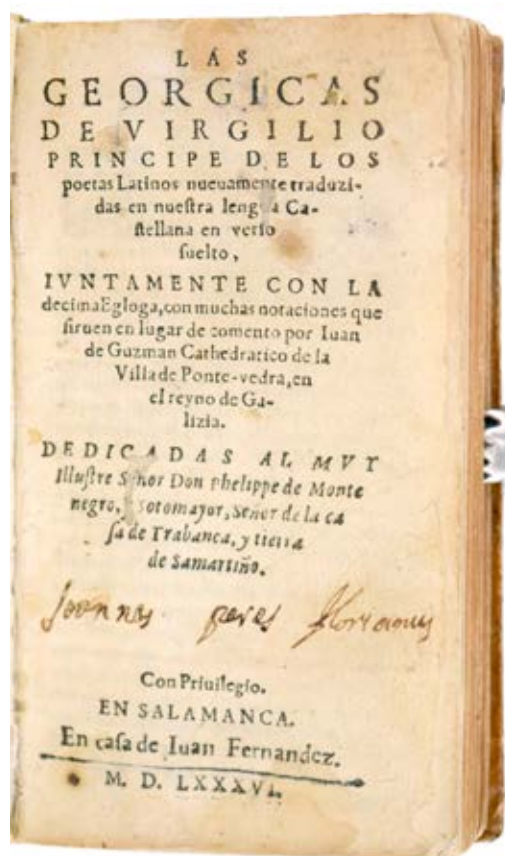 LAS
GEORGICAS
DE VIRGILIO
PRINCIPE DE LOS
poetas Latinos nueuamente traduzi-
das en nueſtra lengua Ca-
ſtellana en verſo
ſuelto,
IVNTAMENTE CON LA
decima Egloga, con muchas notaciones que
ſiruen en lugar de comento por Iuan
de Guzman Cathedratico de la
Villa de Ponte-vedra, en
el reyno de Ga-
lizia.
DEDICADAS AL MVY
Illuſtre Señor Don Phelippe de Monte
negro, y Sotomayor, Señor de la ca
ſa de Trabanca, y tierra
de Samartiño.
Joannes peres
Con Priuilegio.
EN SALAMANCA.
En caſa de Iuan Fernandez.
M. D. LXXXVI.